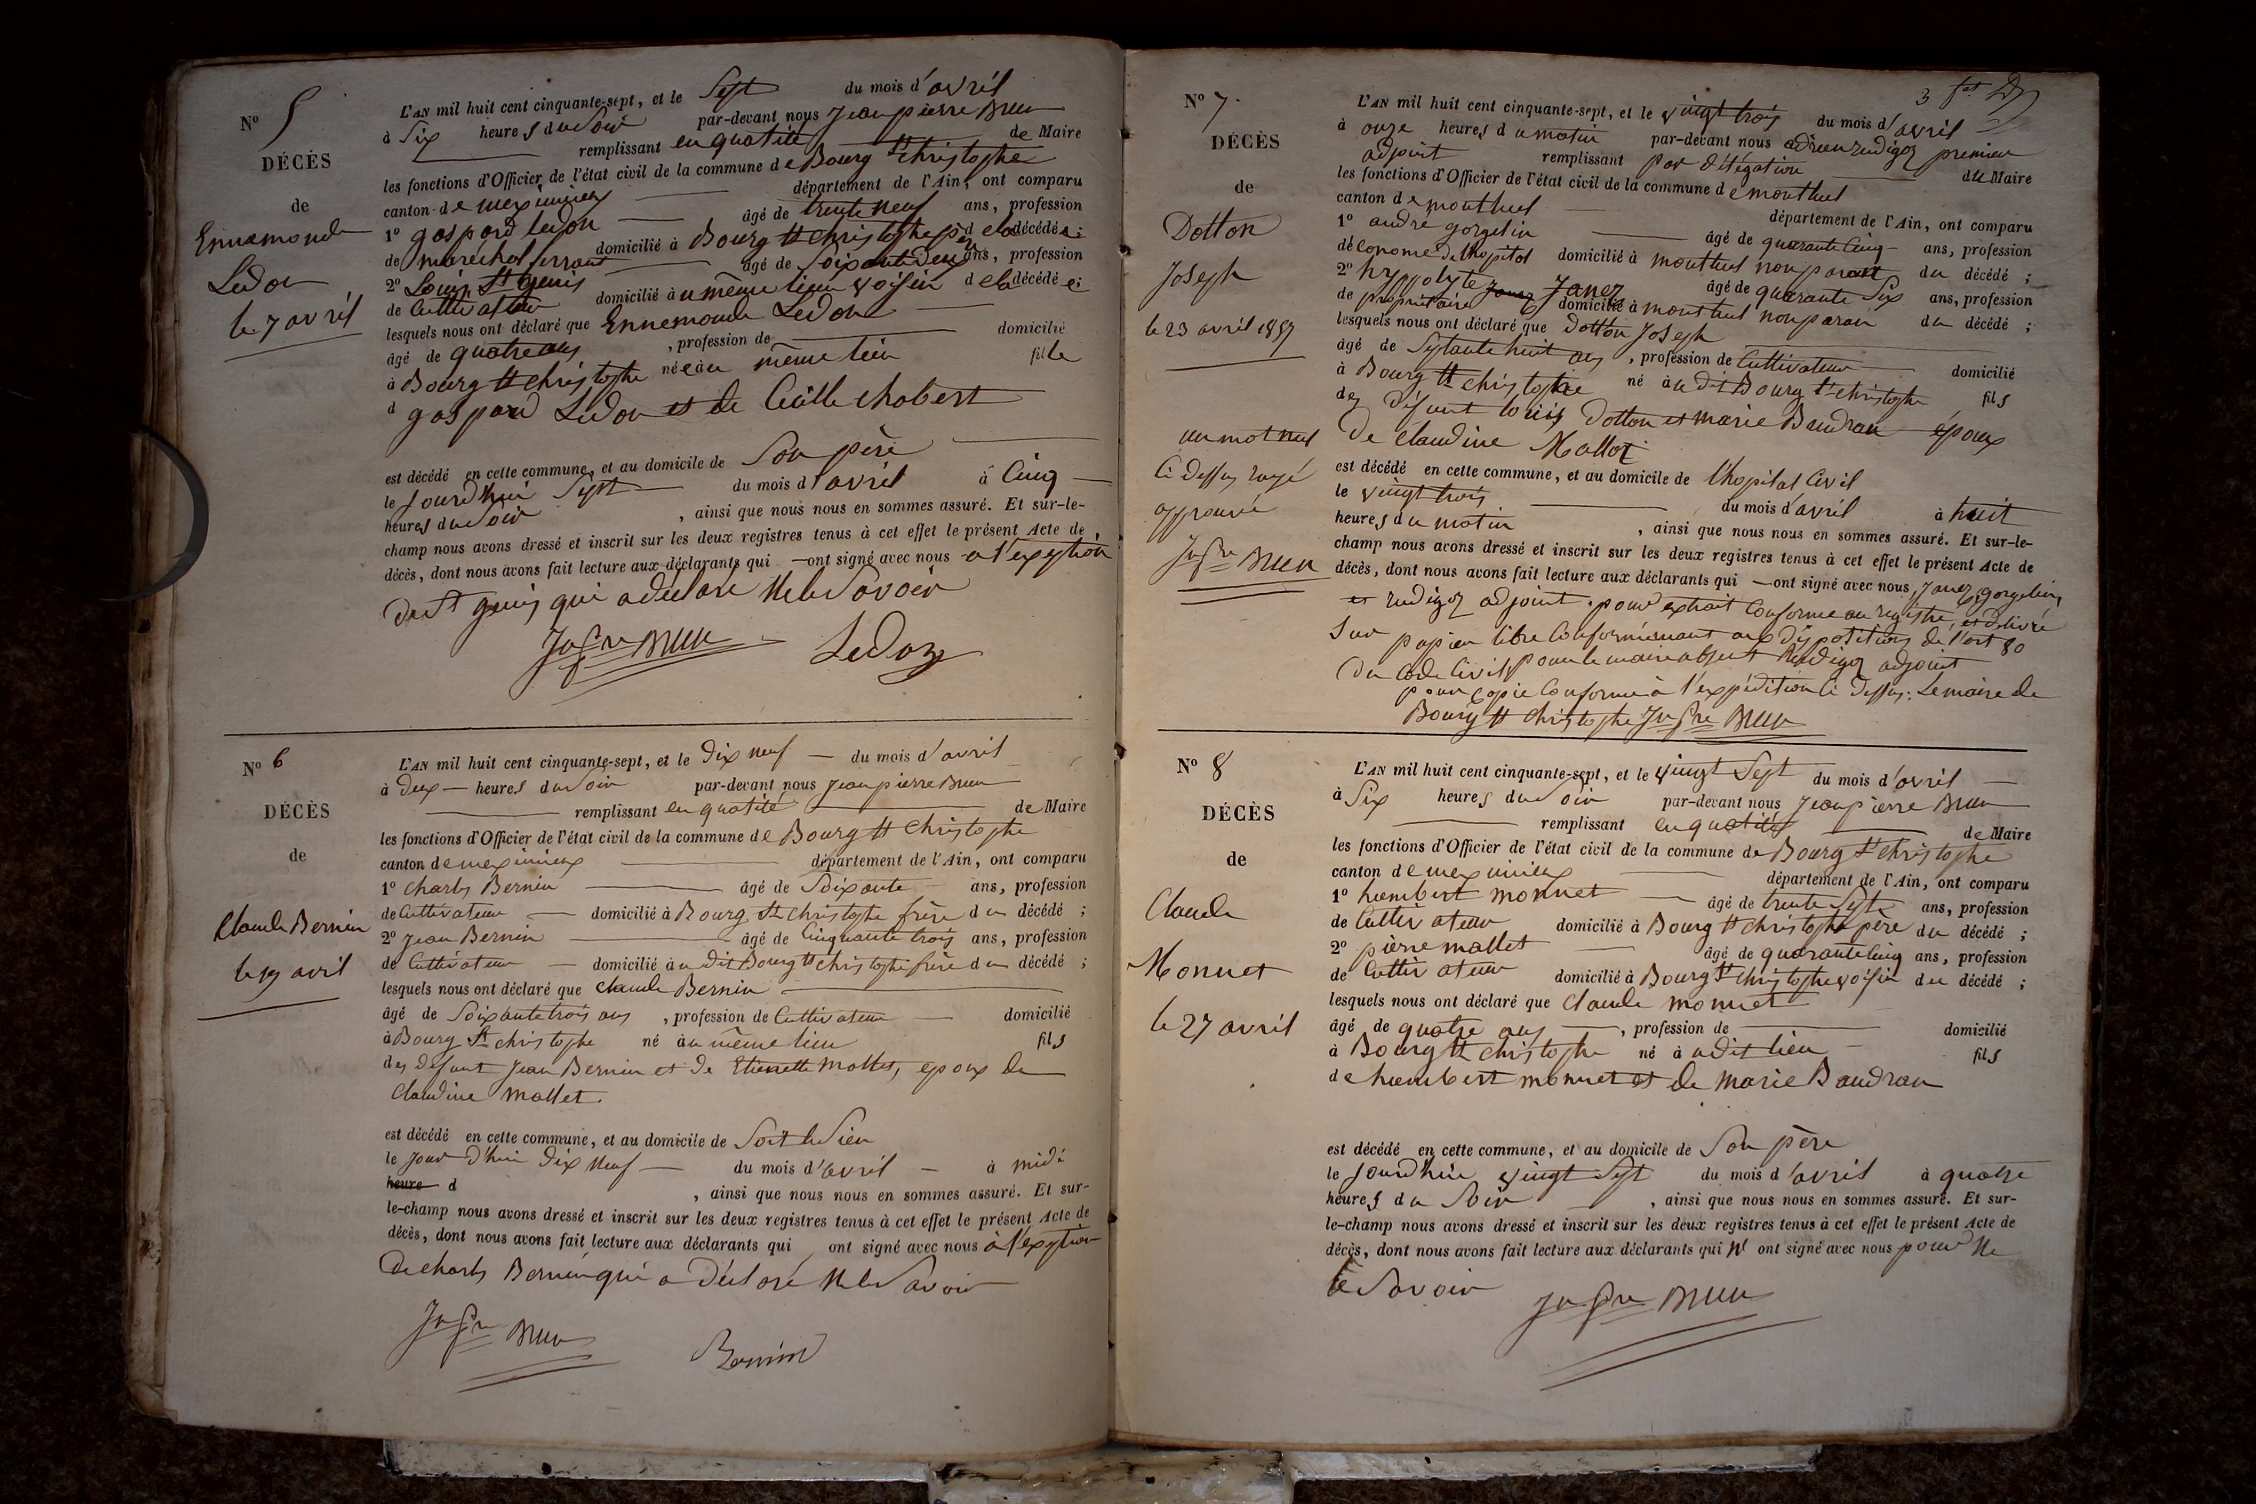 N° 5
DÉCÈS
de
Ennemonde
Ledon
le 7 avril
L'AN mil huit cent cinquante-sept, et le Sept du mois d'avril
à Six heures du Soir par-devant nous Jean pierre Brun
remplissant en qualité de Maire
les fonctions d'Officier de l'état civil de la commune de Bourg St christophe
canton de meximieux département de l'Ain, ont comparu
1° gaspard Ledon âgé de trente neuf ans, profession
de maréchal ferrant domicilié à Bourg St christophe père de la décédée;
2° Louis St Genis âgé de Soixante Deux ans, profession
de Cultivateur domicilié au même lieu voisin de la décédée;
lesquels nous ont déclaré que Ennemonde Ledon
âgé de quatre ans, profession de domicilié
à Bourg St christophe née au même lieu fille
d gaspard Ledon et de Cécille chabert
est décédé en cette commune, et au domicile de Son père
le Jourd'hui Sept du mois d'avril à Cinq
heures du Soir, ainsi que nous nous en sommes assuré. Et sur-le-
champ nous avons dressé et inscrit sur les deux registres tenus à cet effet le présent Acte de
décès, dont nous avons fait lecture aux déclarants qui ont signé avec nous a l'exeption
de St genis qui a déclaré ne le Savoir
Jn Pre Brun Ledon
N° 6
DÉCÈS
de
Claude Bernin
le 19 avril
L'AN mil huit cent cinquante-sept, et le Dix neuf du mois d'avril
à Deux heures du Soir par-devant nous Jean pierre Brun
remplissant en qualité de Maire
les fonctions d'Officier de l'état civil de la commune de Bourg St christophe
canton de meximieux département de l'Ain, ont comparu
1° charles Bernin âgé de Soixante ans, profession
de Cultivateur domicilié à Bourg St christophe frère du décédé;
2° Jean Bernin âgé de Cinquante trois ans, profession
de Cultivateur domicilié au dit Bourg St christophe frère du décédé;
lesquels nous ont déclaré que Claude Bernin
âgé de Soixante trois ans, profession de Cultivateur domicilié
à Bourg St christophe né au même lieu fils
des Défunt Jean Bernin et de Etienette Mollet, epoux de
Claudine Mallet.
est décédé en cette commune, et au domicile de Soit le Sien
le Jour d'hui Dix neuf du mois d'avril à midi
heure d, ainsi que nous nous en sommes assuré. Et sur-
le-champ nous avons dressé et inscrit sur les deux registres tenus à cet effet le présent Acte de
décès, dont nous avons fait lecture aux déclarants qui ont signé avec nous à l'exeption
de charles Bernin qui a Déclaré ne le Savoir
Jn Pre Brun
Bernin
3
N° 7
DÉCÈS
de
Dotton
Joseph
le 23 avril 1857
un mot nul
Ci Dessus rayé
approuvé
Jn Pre Brun
L'AN mil huit cent cinquante-sept, et le vingt trois du mois d'avril
à onze heures du matin par-devant nous adrien rudigoz premier
adjoint remplissant par délégation du Maire
les fonctions d'Officier de l'état civil de la commune de montluel
canton de montluel département de l'Ain, ont comparu
1° andré gorgelin âgé de quarante Cinq ans, profession
d'économe de l'hopital domicilié à montluel non parent du décédé;
2° hyppolyte Janez Janez âgé de quarante Six ans, profession
de propriétaire domicilié à montluel non parent du décédé;
lesquels nous ont déclaré que Dotton Joseph
âgé de Septante huit ans, profession de Cultivateur domicilié
à Bourg St christophe né au dit Bourg St christophe fils
des Défunt Louis Dotton et marie Baudran époux
De Claudine Mallet
est décédé en cette commune, et au domicile de l'hopital Civil
le vingt trois du mois d'avril à huit
heures du matin, ainsi que nous nous en sommes assuré. Et sur-le-
champ nous avons dressé et inscrit sur les deux registres tenus à cet effet le présent Acte de
décès, dont nous avons fait lecture aux déclarants qui ont signé avec nous, Janez, gorgelin,
et rudigoz adjoint. pour extrait Conforme au registre, et délivré
Sur papier libre Conformément aux Dispositions de l'art 80
Du Code Civil, pour le maire absent Rudigoz adjoint
pour copie Conforme à l'expédition Ci Dessus: Le maire de
Bourg St christophe Jn Pre Brun
N° 8
DÉCÈS
de
Claude
Monnet
le 27 avril
L'AN mil huit cent cinquante-sept, et le vingt Sept du mois d'avril
à Six heures du Soir par-devant nous Jean pierre Brun
remplissant en qualité de Maire
les fonctions d'Officier de l'état civil de la commune de Bourg St christophe
canton de meximieux département de l'Ain, ont comparu
1° humbert monnet âgé de trente Sept ans, profession
de Cultivateur domicilié à Bourg St christophe père du décédé;
2° pierre mallet âgé de quarante Cinq ans, profession
de Cultivateur domicilié à Bourg St christophe voisin du décédé;
lesquels nous ont déclaré que Claude monnet
âgé de quatre ans, profession de domicilié
à Bourg St christophe né au dit lieu fils
de humbert monnet et de marie Baudran
est décédé en cette commune, et au domicile de Son père
le Jourd'hui vingt Sept du mois d'avril à quatre
heures du Soir, ainsi que nous nous en sommes assuré. Et sur-
le-champ nous avons dressé et inscrit sur les deux registres tenus à cet effet le présent Acte de
décès, dont nous avons fait lecture aux déclarants qui n' ont signé avec nous pour ne
le Savoir
Jn Pre Brun